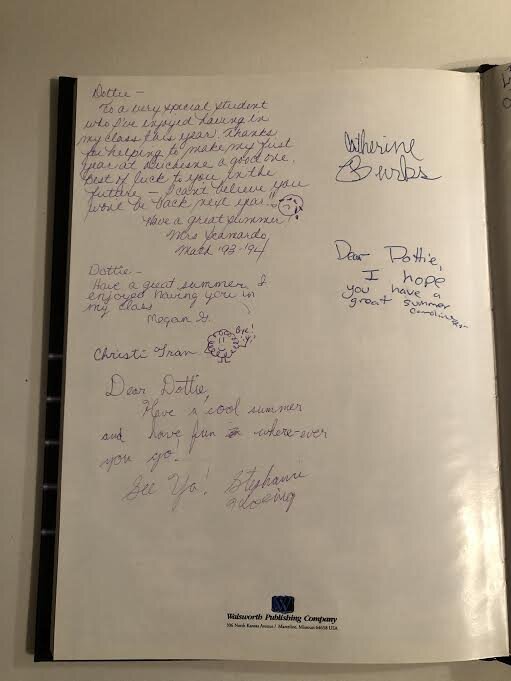 Dottie —
To a very special student
who I've enjoyed having in
my class this year. Thanks
for helping to make my first
year at Duchesne a good one.
Best of luck to you in the
future — I can't believe you
wont be back next year!!
Have a great summer!
Mrs Leonardo
Math '93-'94
Dottie —
Have a great summer I
enjoyed having you in
my class
Megan G.
Christi Tran
Bye!
Dear Dottie,
Have a cool summer
and have fun where-ever
you go.
See Ya! Stephanie
Catherine
Burbs
Dear Dottie,
I hope
you have a
great summer
W
Walsworth Publishing Company
306 North Kansas Avenue / Marceline, Missouri 64658 USA